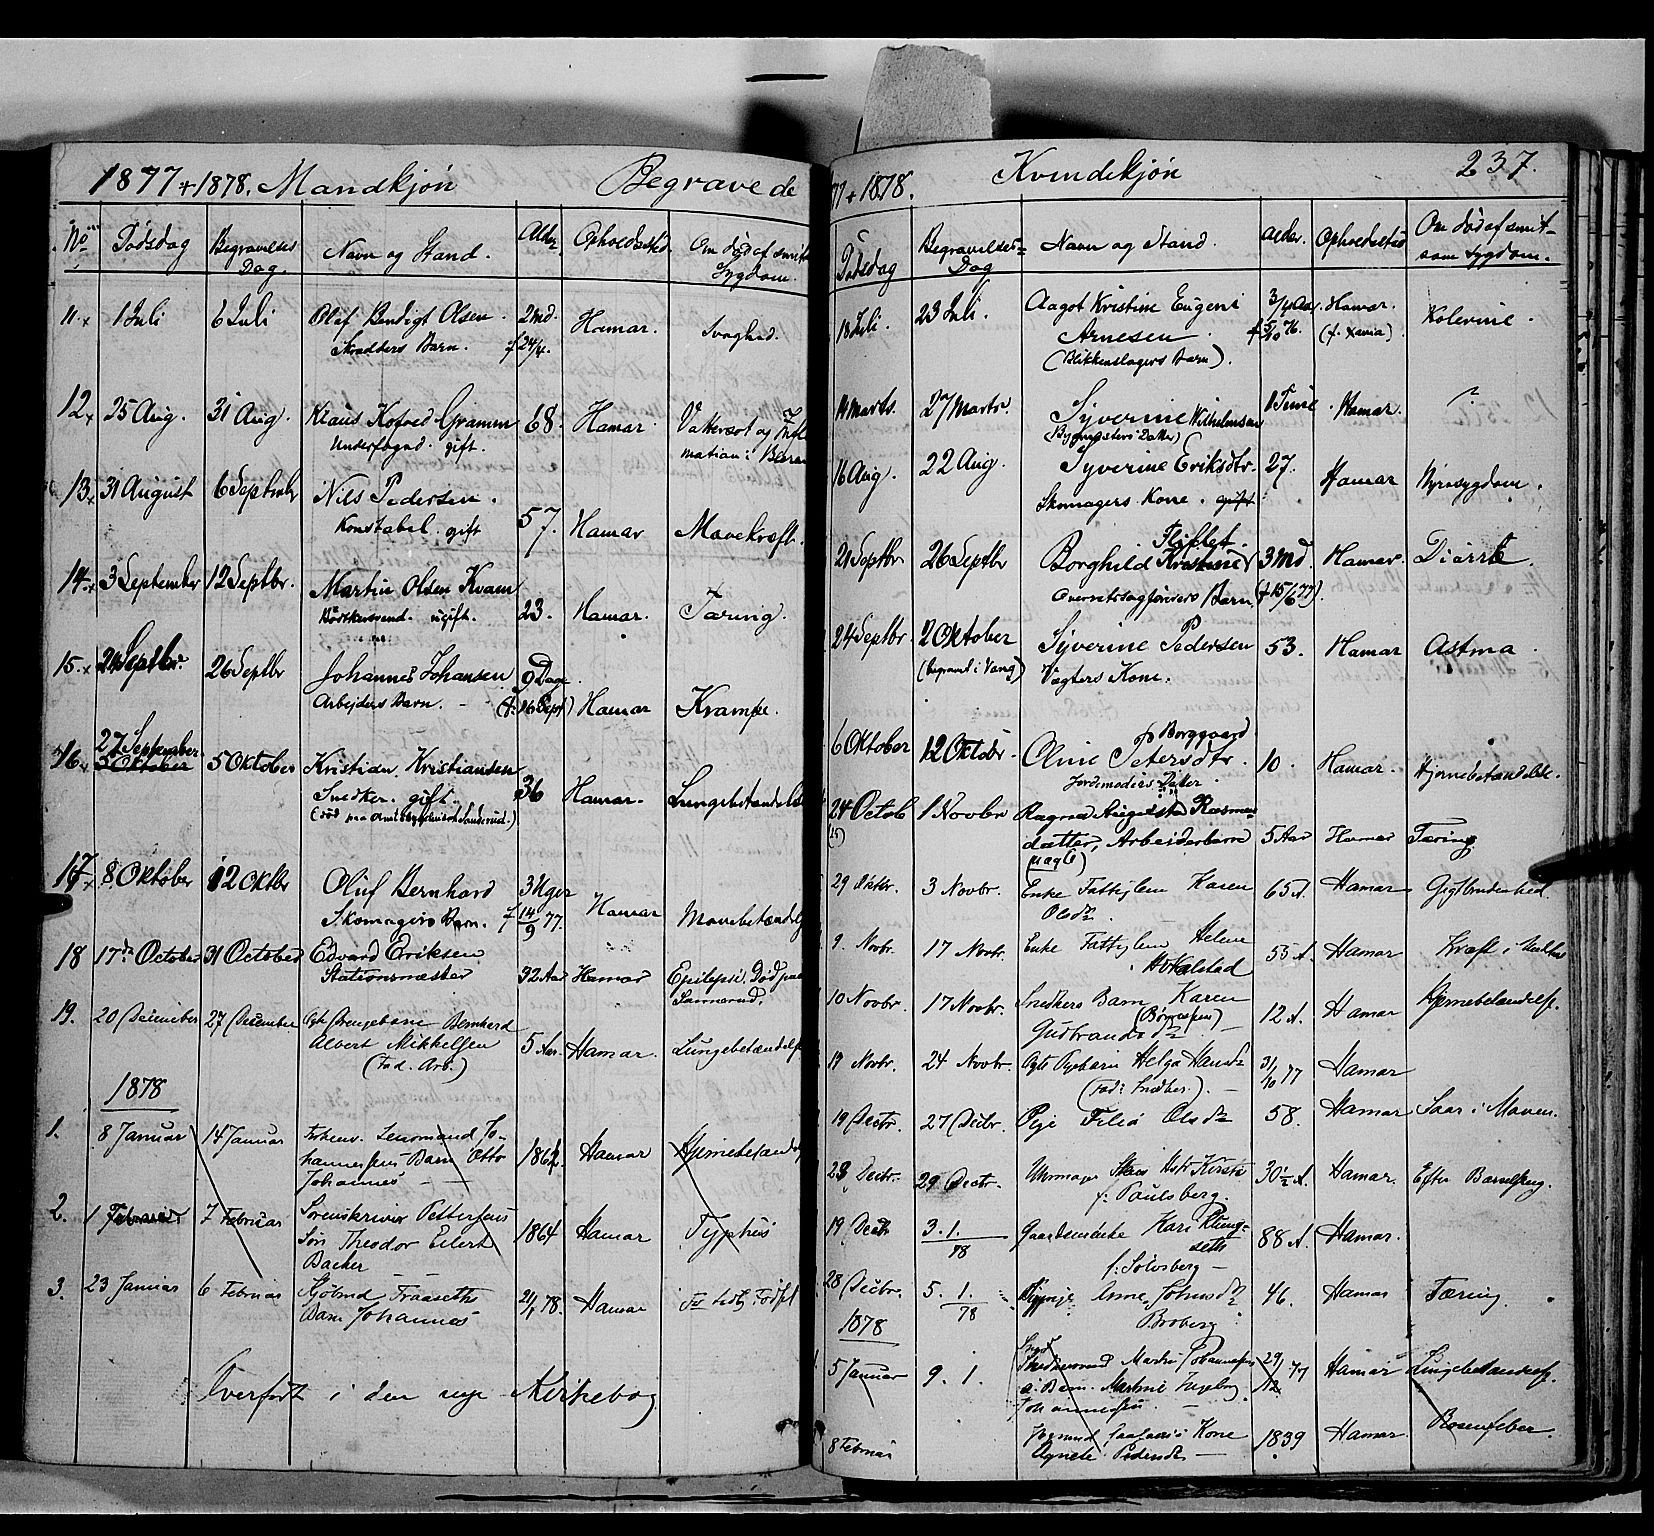 1877 + 1878. Mandkjøn Begravede
No Dødsdag Begravelses Dag. Navn og Stand. Alder Opholdssted Om død af smitt Sygdom.
11. 1 Juli 6 Juli Olaf Bendigt Olsen. 2 Md. Hamar. Svaghed.
Skrædders Barn. f 24/4.
12 25 Aug. 31 Aug. Klaus Kofoed Gramm 68. Hamar Vattersot og Infl
Underfoged. gift. mation i Blæren
13 31 August 6 Septmbr Nils Pedersen.
Konstabel. gift 57. Hamar Mavekræft.
14. 3 September 12 Septbr. Martin Olsen Kvam
ugift. 23. Hamar. Tæring.
15. 24 Septbr. 26 Septbr Johannes Johansen 9 Dage
Arbejders Barn. (f. 16 Sept) Hamar Krampe.
27 September
16. 5 Oktober 5 Oktober Kristian Kristiansen
Snedker. gift. 36 Hamar. Lungebetændelse
17 8 Oktober 12 Oktbr Oluf Bernhard 3 Uger
Skomagers Barn. f 14/9 77. Hamar Mavebetændels
18 17de October 31 October Edvard Eriksen
Stationsmester 32 Aar Hamar Epilepsi. Død paa
Sannerud.
19. 20 December 27 December Agte Drengebarn Bernhard
Albert Mikkelsen 5 Aar. Hamar. Lungebetændelse
(Fad. Arb.)
1878
1. 8 Januar 14 Januar Jo-
hannesens Barn Otto 1862. Hamar Hjernebetændels
Johannes
2. 1 Februar 7 Februar Sorenskriver Pettersens
Søn Theodor Eilert 1864 Hamar Typhus
Backer
3. 23 Januar 6 Februar Fraaseths 21/1 78. Hamar
Barn Johannes
Overført i den nye Kirkebog
77 + 1878. Kvindekjøn 237.
Dødsdag Begravelses= Dag Navn og Stand. Alder. Opholdssted Om død af smit-
som Sygdom.
18 Juli. 23 Juli. Aagot Kristine Eugeni 3/4 Aar. Hamar. Kolerine.
Arnesen f 5/10 76. (f. Xania)
(Blikkenslagers Barn).
14 Marts. 27 Marts. Syverine Wilhelmsen 1 Time Hamar. ?
16 Aug. 22 Aug. Syverine Eriksdtr. 27. Hamar Nyresygdom.
Skomagers Kone. gift
Fliflet.
21 Septbr 26 Septbr Borghild Kristine 3 Md. Hamar. Diarrè
Overretssagførers Barn (f 15/6 77).
24 Septbr. 2 Oktober Syverine Pedersen 53. Hamar Astma.
(begravet i Vang) Vægters Kone.
Borggaard
6 Oktober 12 Oktobr. Oline Petersdtr. 10. Hamar. Hjernebetændelse.
Jordemoders Datter.
24 Octob 1 Novbr Ragna Augusta Rasmus-
(25) datter, Arbeiderbarn 5 Aar Hamar Tæring
(uægte)
29 Octbr. 3 Novbr. Enke Fattiglem Karen 65 A. Hamar Gigtbrudenhed
Olsdr.
9. Novbr. 17 Novbr. Enke Fattiglem Helene 55 A. Hamar Kræft i
10 Novbr. 17 Novbr. Snedkers Barn Karen 12 A. Hamar Hjernebetændelse.
Gudbrandsdr
19 Novbr. 24 Novbr. Agte Pigebarn Helga Hansdr 31/10 77 Hamar
(Fad: Snedker).
19 Decbr. 27 Decbr. Pige Olsdr 58. Hamar Saar i Maven.
23 Decbr. 29 Decbr. Uhrmager 30 1/2 A. Hamar. Efter Barnefseng.
f. Paulsberg.
19 Decbr 3. 1. / 78 Gaardmandenke Kari Klung-
seth 88 A. Hamar.
f. Solvsberg
28 Decbr. 5. 1. / 78 Anne Johnsdr 46. Hamar Tæring.
Broberg
1878
5 Januar 9. 1. Martin Johannesens 29/12 77 Hamar Lungebetændelse.
Barn. Martine Ingeborg
Johannesen
8 Februar Kone 1839 Hamar. Rosenfeber.
Agnete Pedersdr